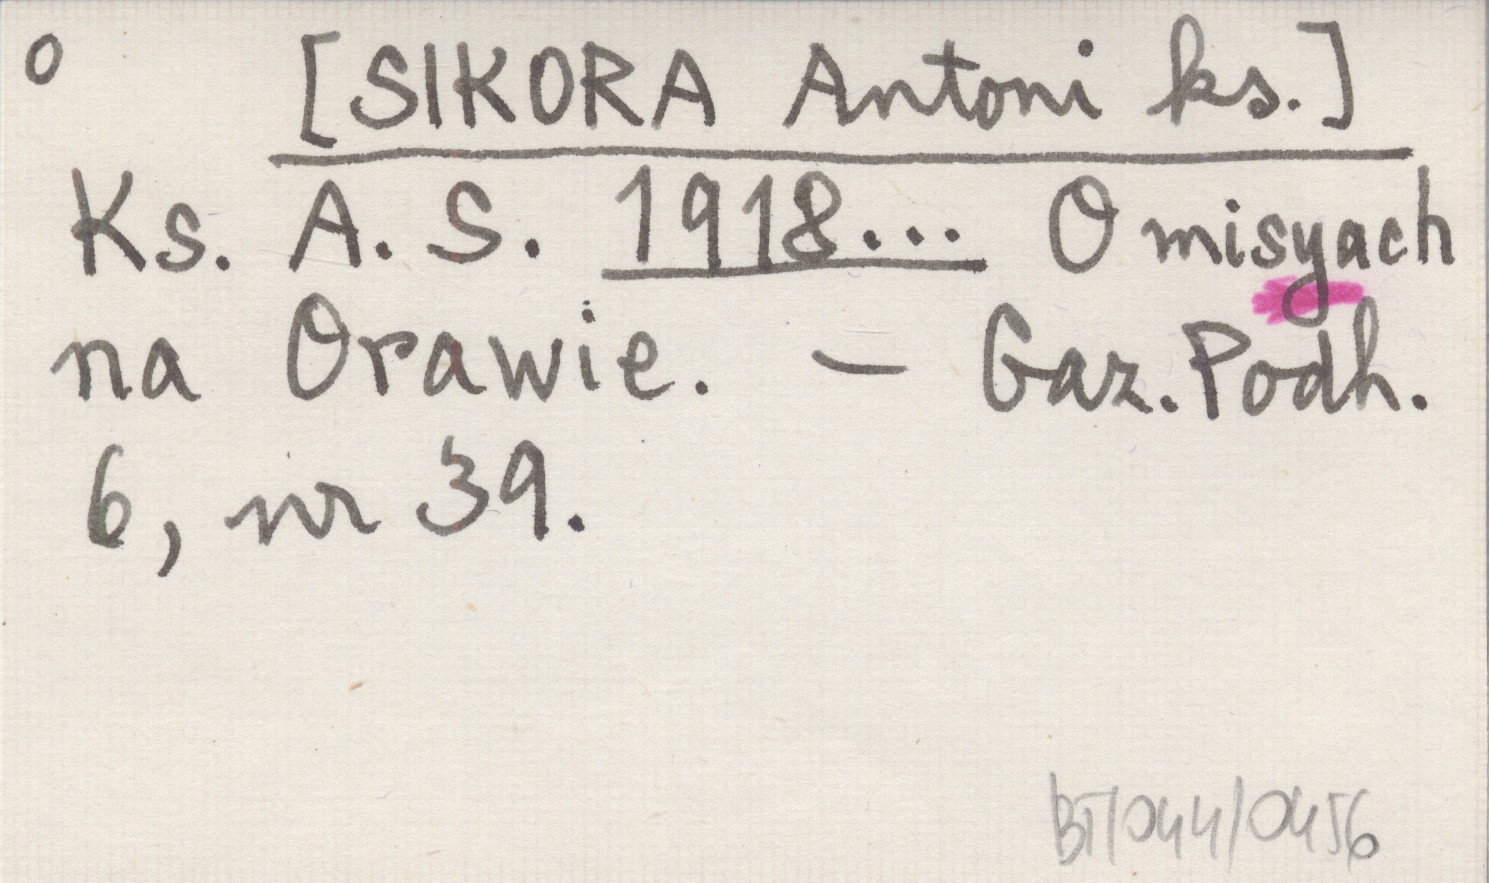 o [SIKORA Antoni ks.]
Ks. A. S. 1918... O misyach
na Orawie. – Gaz. Podh.
6, nr 39.
BT/044/0456